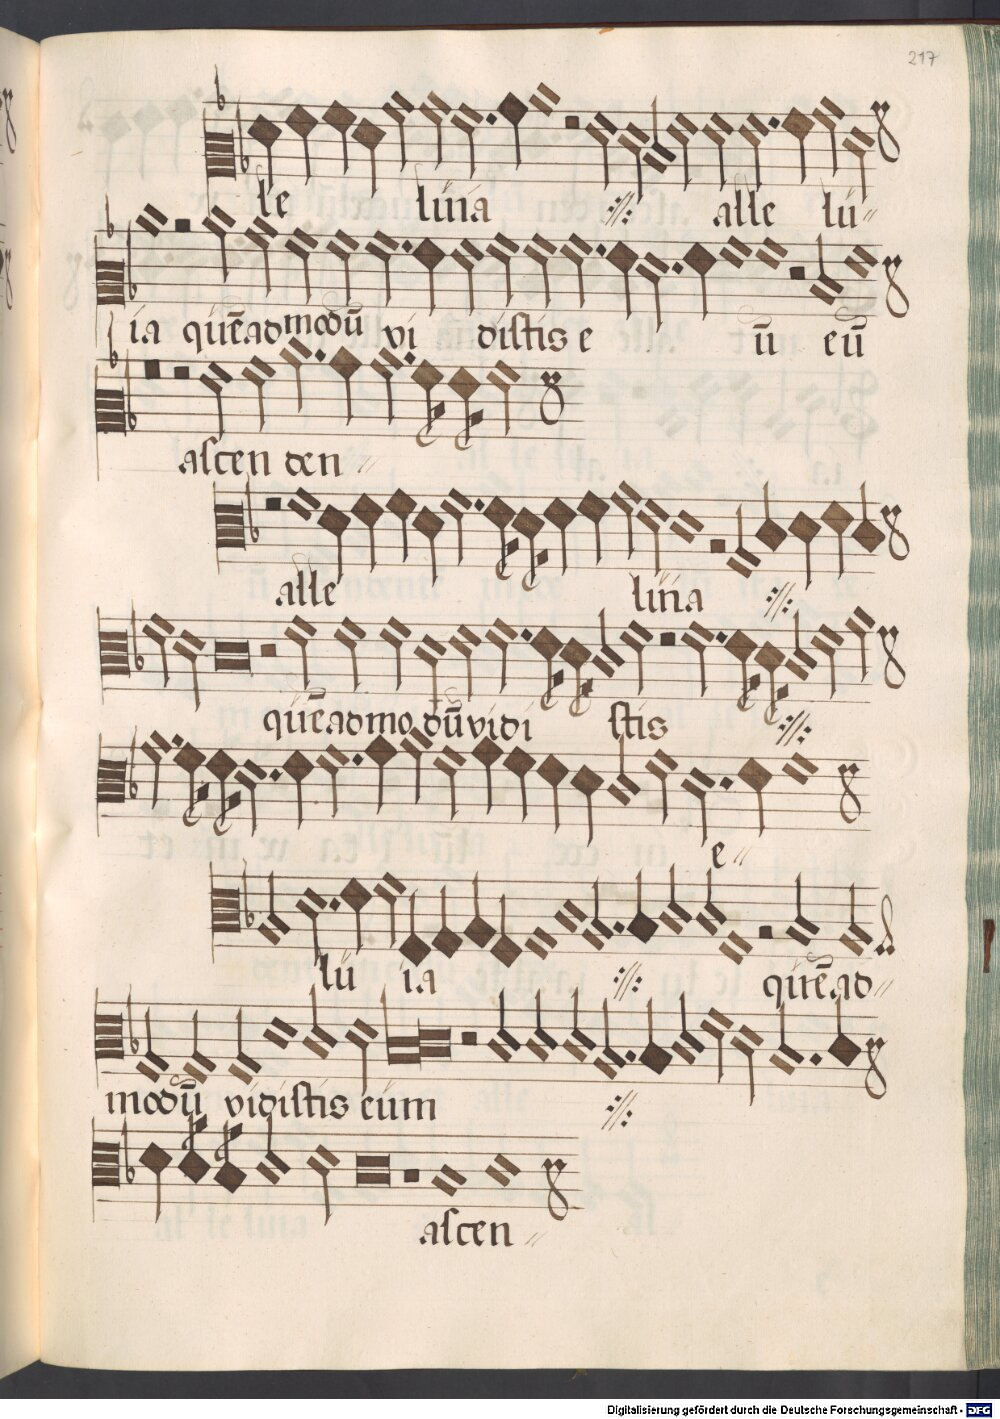 217
le luia alle lu
ia quēadmodū vi distis e ū eū
ascen den
alle luia
quēadmodū vidi stis
e
lu ia quēad
modū vidistis eum
ascen
Digitalisierung gefördert durch die Deutsche Forschungsgemeinschaft - DFG